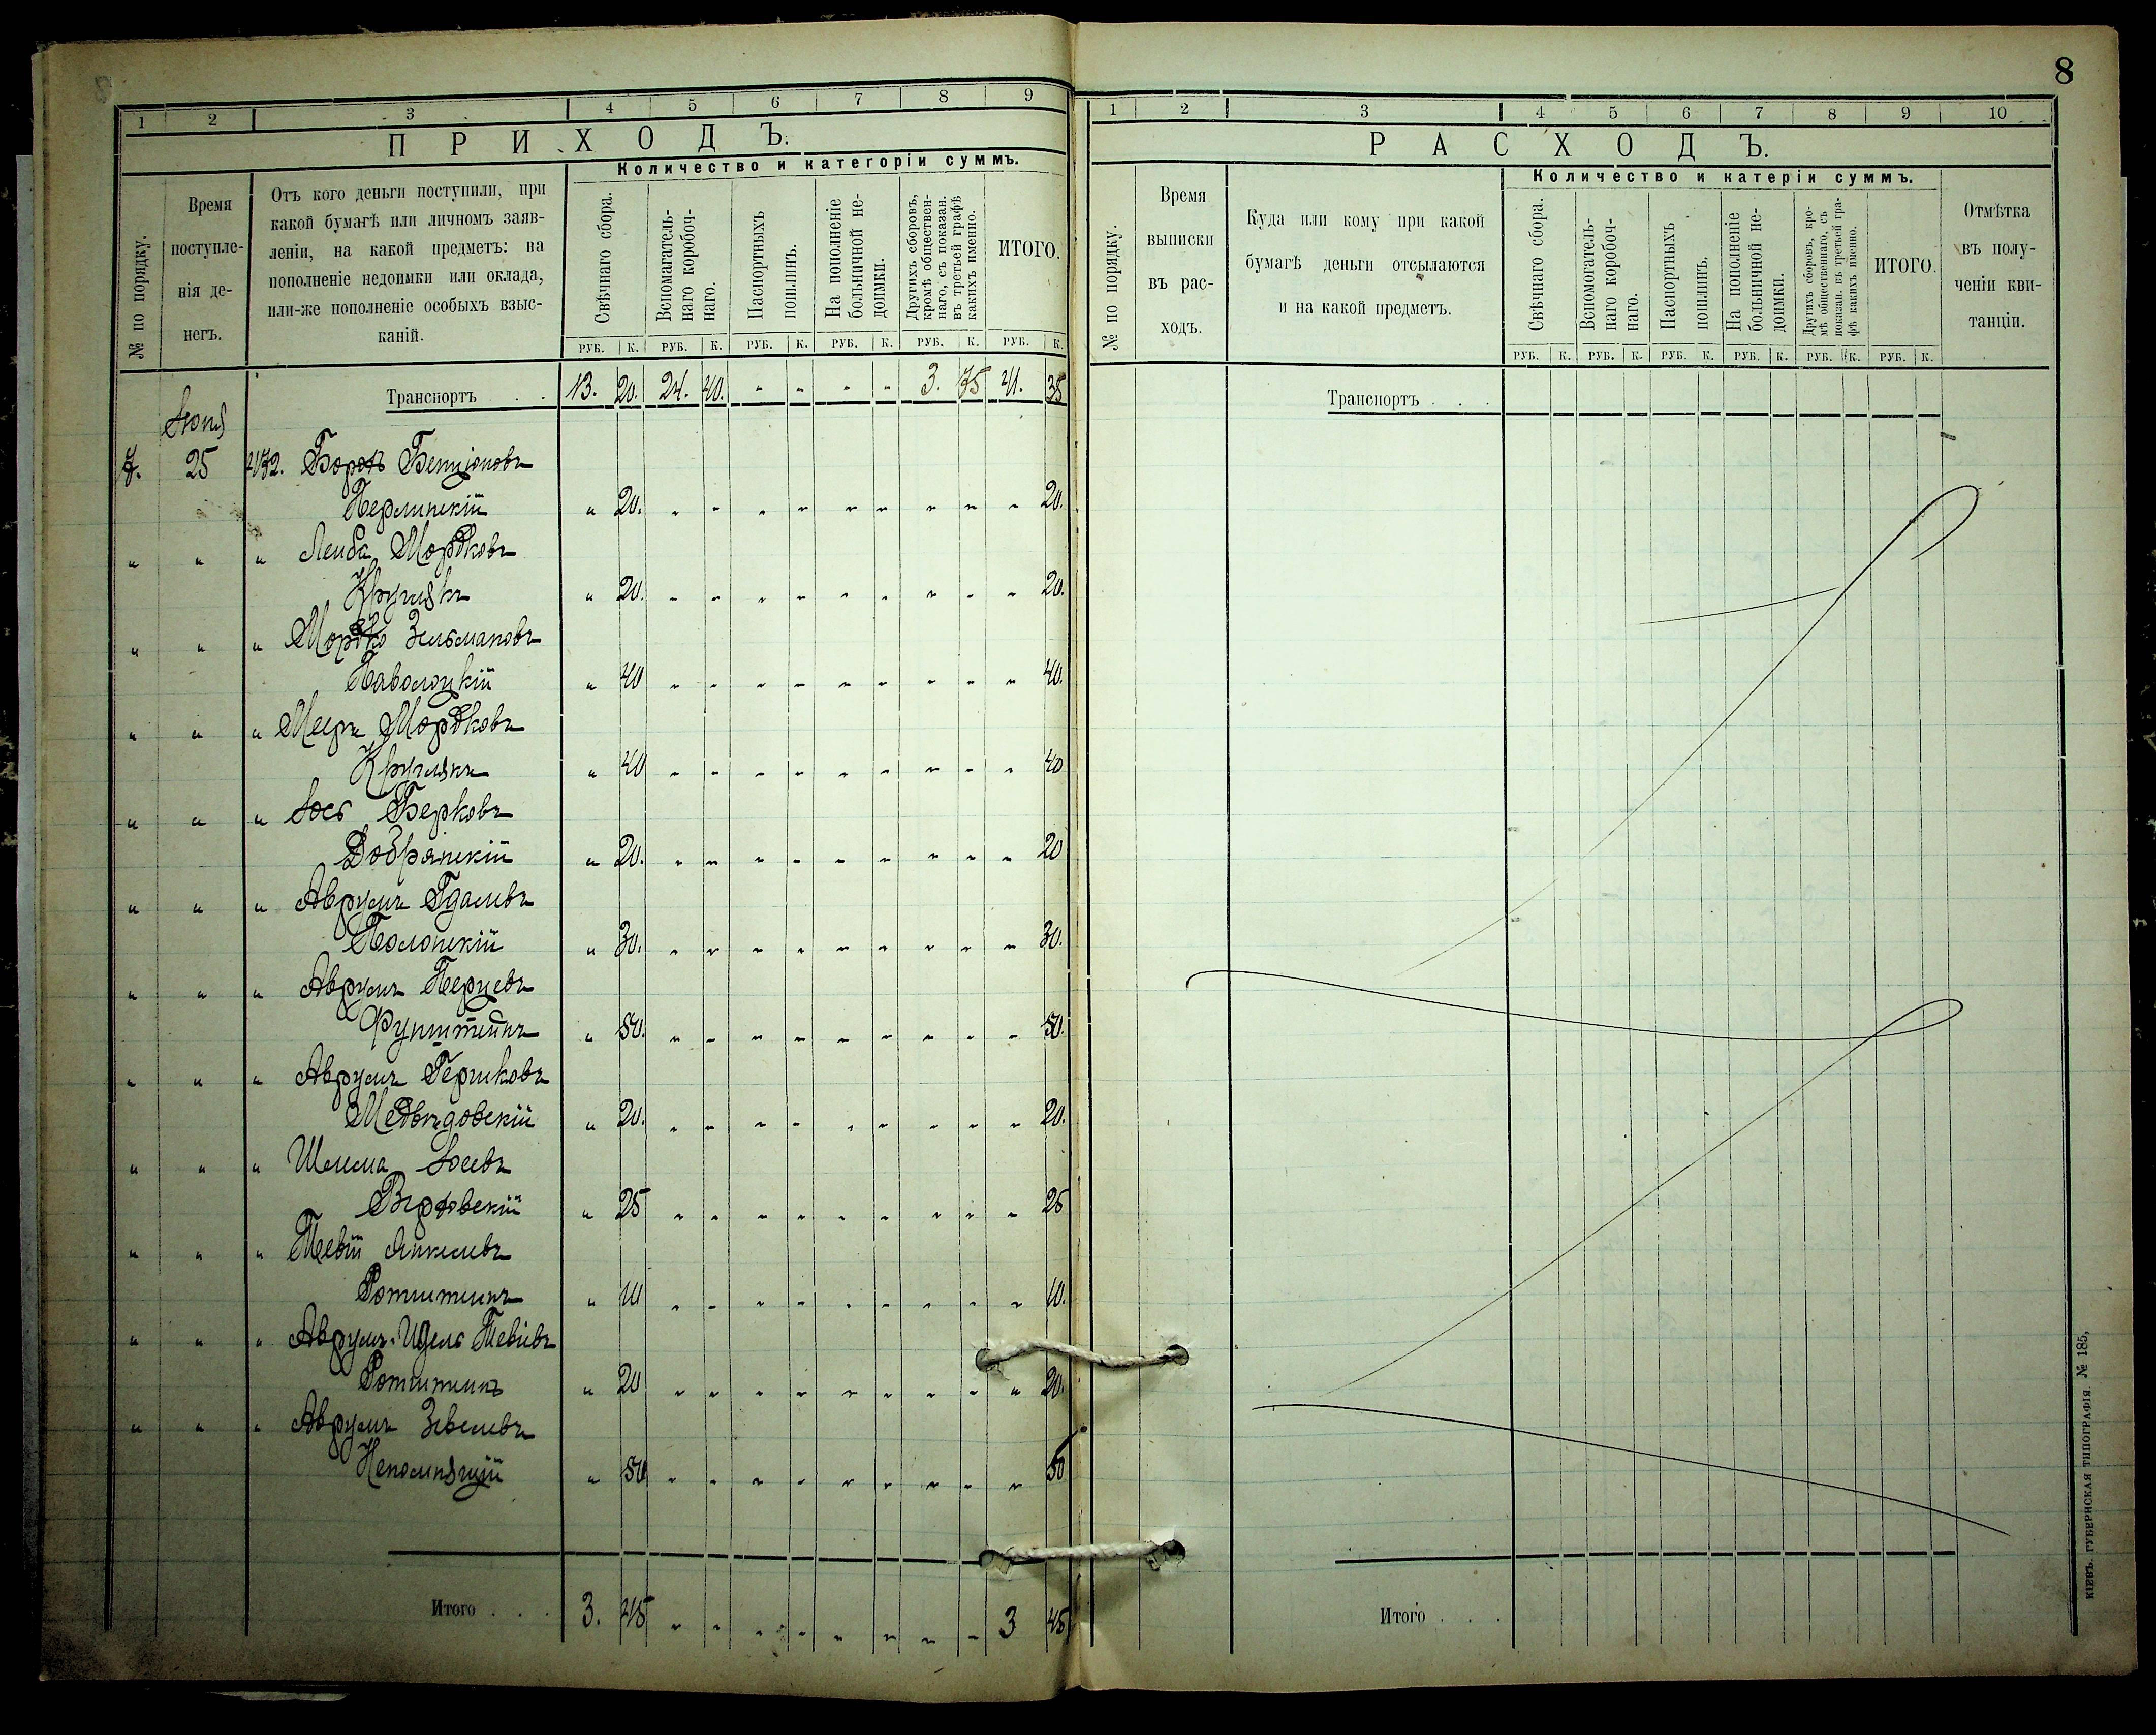 8
1 2 3 4 5 6 7 8 9
ПРИХОДЪ.
№ по порядку.
Время
поступле-
нія де-
негъ.
Отъ кого деньги поступили, при
какой бумагѣ или личномъ заяв-
леніи, на какой предметъ: на
пополненіе недоимки или оклада,
или-же пополненіе особыхъ взыс-
каній.
Количество и категоріи суммъ.
Свѣчнаго сбора.
Вспомагатель-
наго коробоч-
наго.
Паспортныхъ
пошлинъ.
На пополненіе
больничной не-
доимки.
Другихъ сборовъ,
кромѣ обществен-
наго, съ показан.
въ третьей графѣ
какихъ именно.
ИТОГО.
РУБ. К. РУБ. К. РУБ. К. РУБ. К. РУБ. К. РУБ. К.
Транспортъ . . 13. 20. 24. 40. " " " " 3. 75 41. 35
Іюня
7. 25 Борохъ Бенціоновъ
Перлинскій " 20. " " " " " " " " " 20.
" " " Лейба Мордковъ
Круглякъ " 20. " " " " " " " " " 20.
" " " Мордко Зельмановъ
Паволоцкій " 40 " " " " " " " " " 40.
" " " Мееръ Мордковъ
Круглякъ " 40 " " " " " " " " " 40
" " " Іось Берковъ
Добрянскій " 20. " " " " " " " " " 20
" " " Аврумъ Гдалевъ
Полонскій " 30. " " " " " " " " " 30.
" " " Аврумъ Перцевъ
Функштейнъ " 50. " " " " " " " " " 50.
" " " Аврумъ Гершковъ
Медвѣдовскій " 20. " " " " " " " " " 20.
" " " Шлема Іосевъ
" 25 " " " " " " " " " 25
" " " Тевій Янкелевъ
Ротштейнъ " 10 " " " " " " " " " 10.
" " " Аврумъ-Идель Тевіевъ
Ротштейнъ " 20 " " " " " " " " " 20.
" " " Аврумъ Зевелевъ
Непомнящій " 50 " " " " " " " " " 50
Итого . . . 3. 45 " " " " " " " " 3 45
1 2 3 4 5 6 7 8 9 10
РАСХОДЪ.
№ по порядку.
Время
выписки
въ рас-
ходъ.
Куда или кому при какой
бумагѣ деньги отсылаются
и на какой предметъ.
Количество и катеріи суммъ.
Свѣчнаго сбора.
Вспомогатель-
наго коробоч-
наго.
Паспортныхъ
пошлинъ.
На пополненіе
больничной не-
доимки.
Другихъ сборовъ, кро-
мѣ общественнаго, съ
показан. въ третьей гра-
фѣ какихъ именно.
ИТОГО.
Отмѣтка
въ полу-
ченіи кви-
танціи.
РУБ. К. РУБ. К. РУБ. К. РУБ. К. РУБ. К. РУБ. К.
Транспортъ . . .
Итого . . .
КІЕВЪ. ГУБЕРНСКАЯ ТИПОГРАФІЯ. № 185,